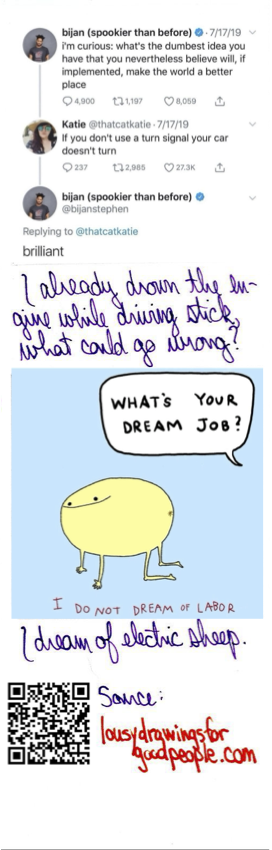 bijan (spookier than before) · 7/17/19
i'm curious: what's the dumbest idea you
have that you nevertheless believe will, if
implemented, make the world a better
place
4,900 1,197 8,059
Katie @thatcatkatie · 7/17/19
If you don't use a turn signal your car
doesn't turn
237 2,985 27.3K
bijan (spookier than before)
@bijanstephen
Replying to @thatcatkatie
brilliant
I already drown the en-
gine while driving stick,
what could go wrong?
WHAT'S YOUR
DREAM JOB?
I DO NOT DREAM OF LABOR
I dream of electric sheep.
Source:
lousydrawingsfor
goodpeople.com